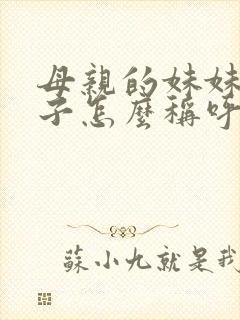 母親的妹妹
子怎麼稱呼
蘇小九就是我